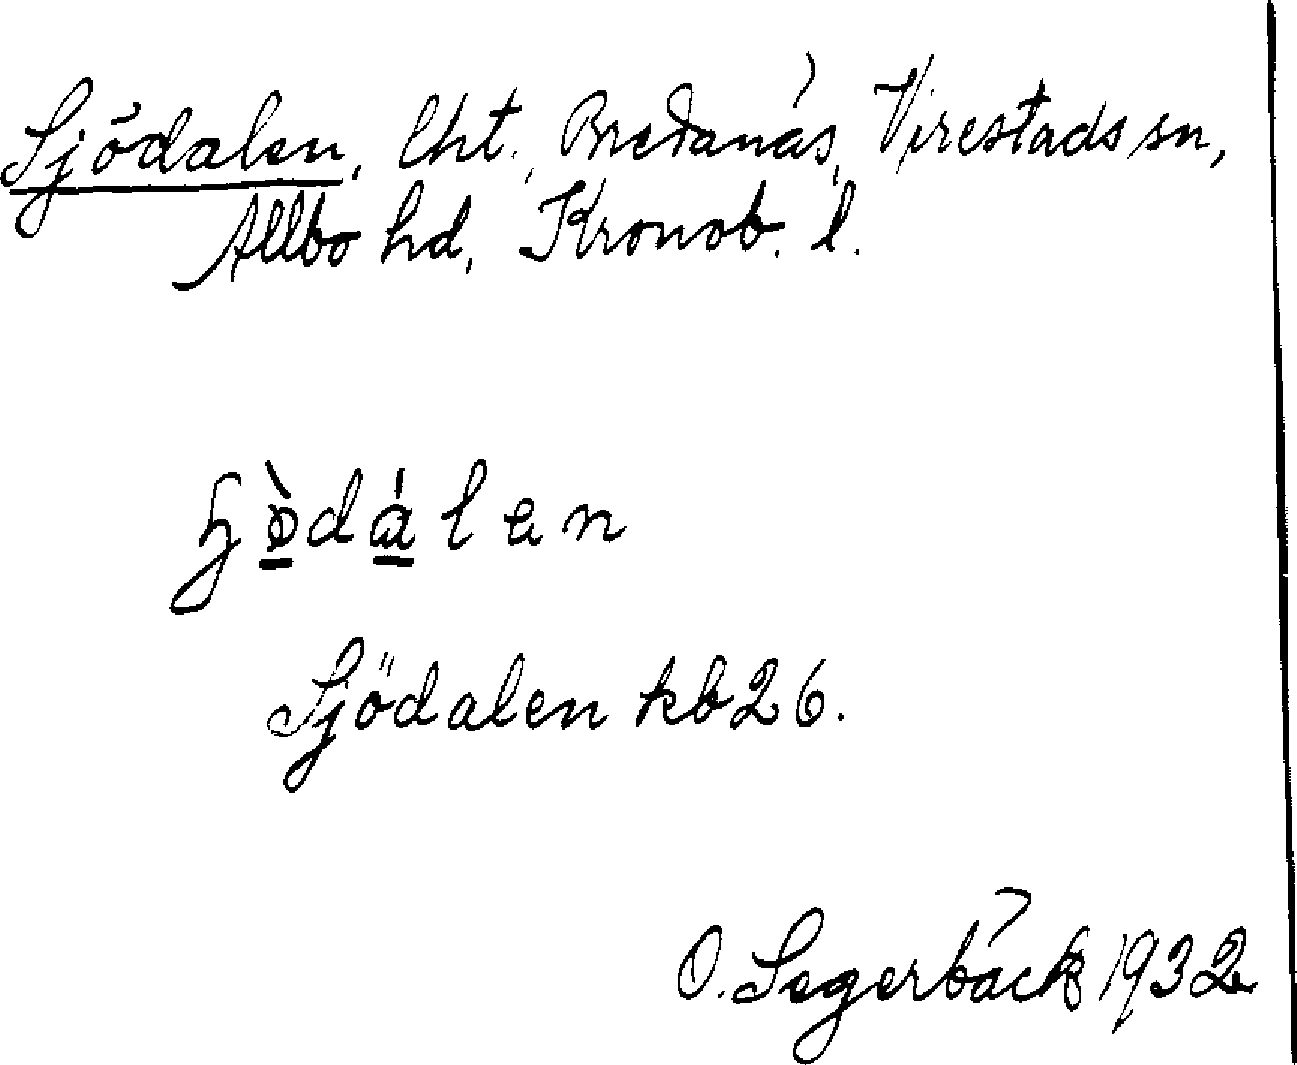 Sjödalen, lht, Bredanäs, Virestads sn,
Allbo hd, Kronob. l.
ɧø̀dálen
Sjödalen kb 26.
O. Segerbäck 1932